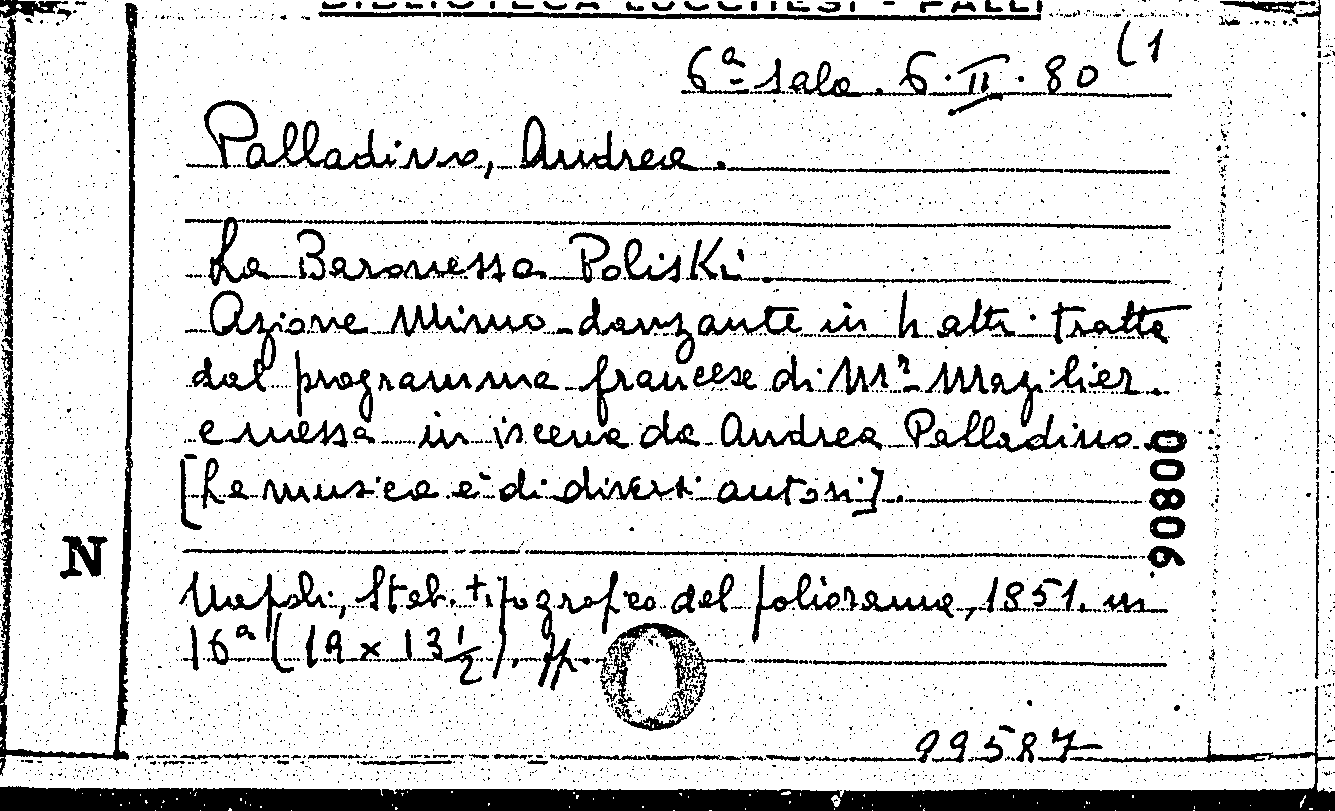 BIBLIOTECA LUCCHESI - PALLI
6ª Sala. 6. II. 80 (1
Palladino, Andrea.
La Baronessa Poliski.
Azione Mimo-danzante in 4 atti. tratta
dal programma francese di Mr. Mazilier.
e messa in iscena da Andrea Palladino.
[La musica è di diversi autori].
00806
N
Napoli, Stab. tipografico del poliorama, 1851. in
16ª (19 x 13 ½).
99587